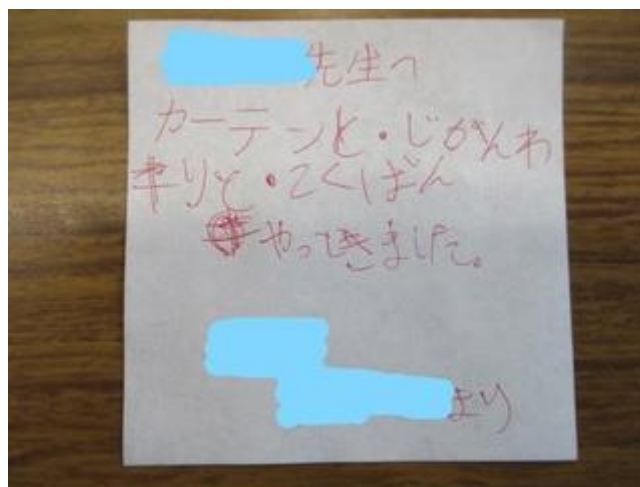 先生へ
カーテンと・じかんわ
キりと・こくばん
やってきました。
より